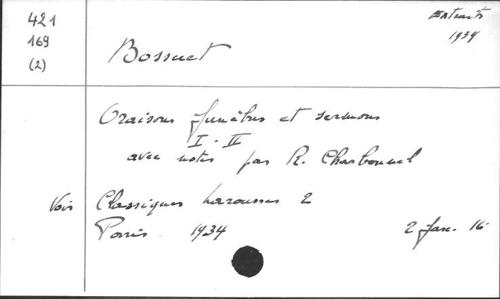 421
169
(2)
Extraits
1934
Bossuet
Oraisons funèbres et sermons
I - II
avec notes par R. Charbonnel
Voir Classiques Larousse 2
Paris 1934 2 fasc. 16°